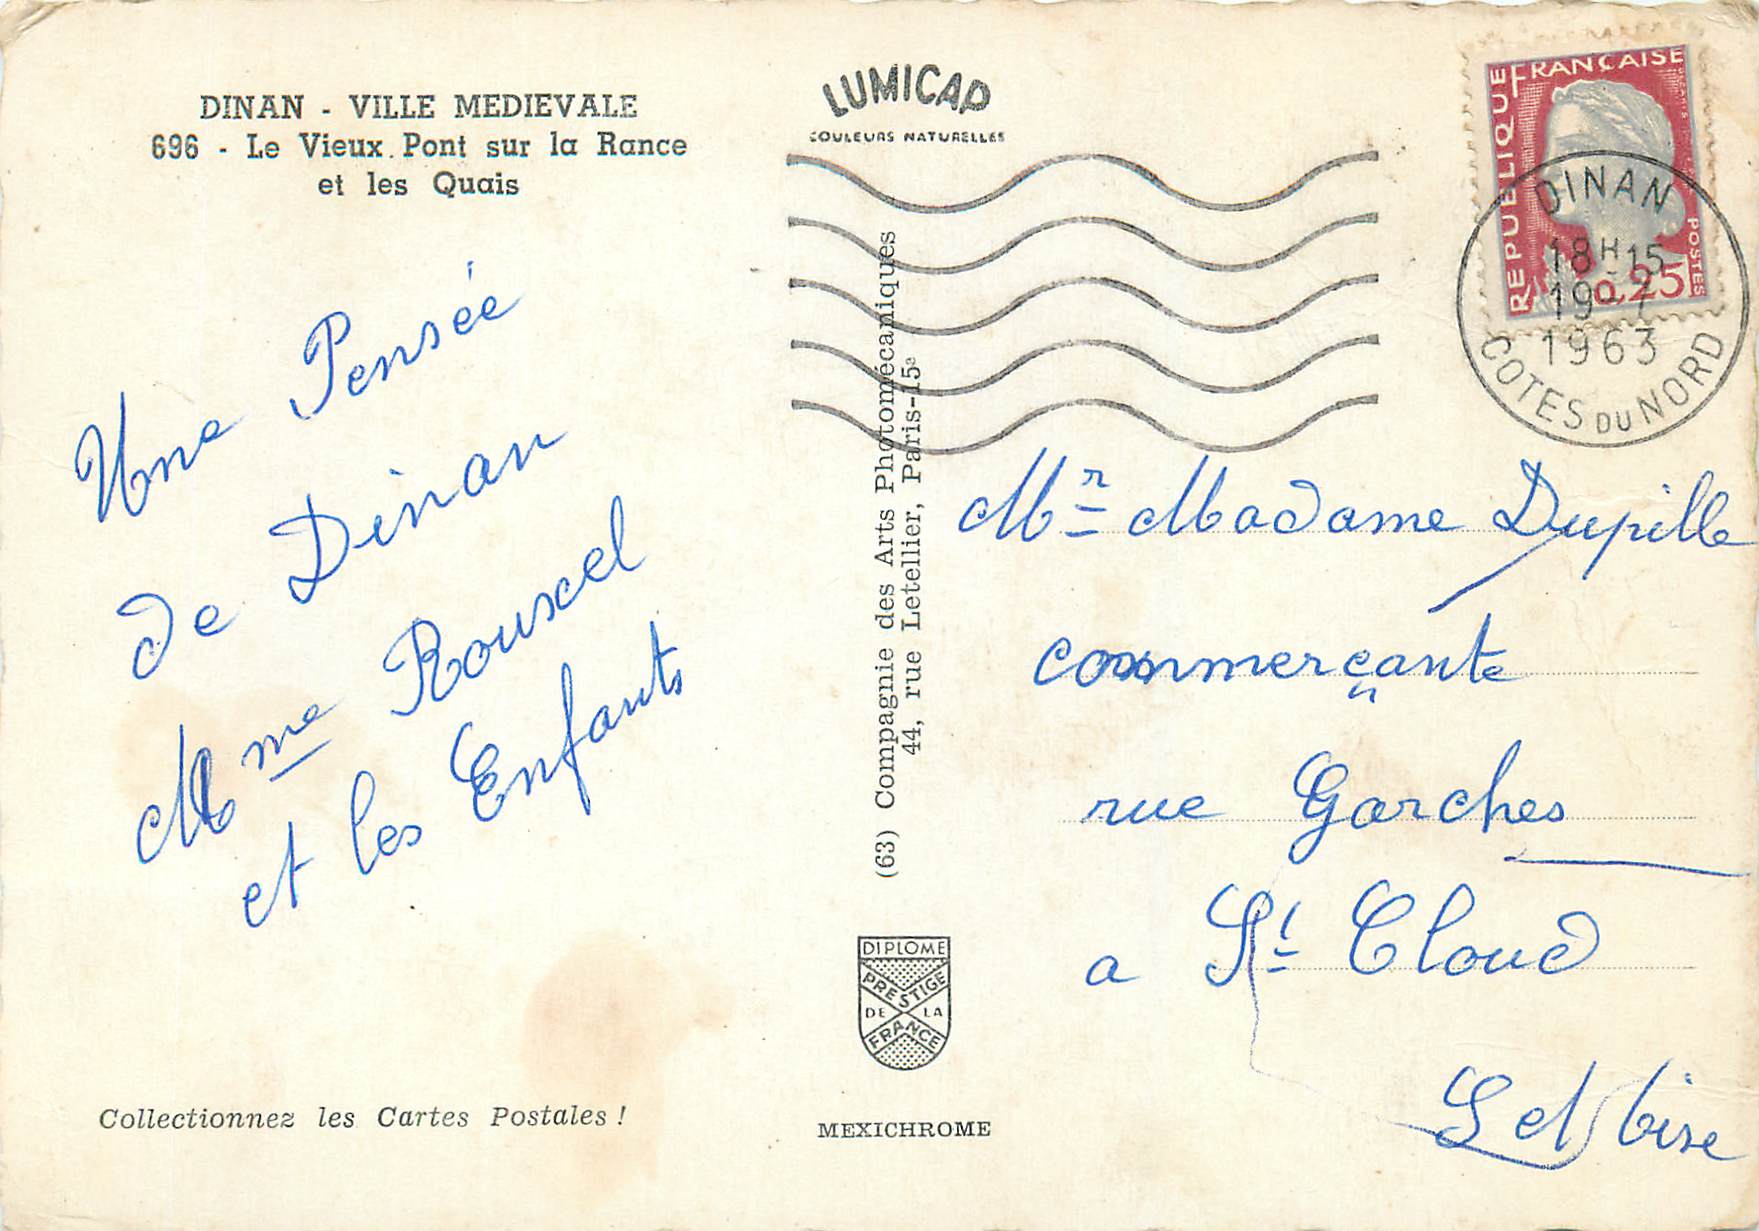 DINAN - VILLE MEDIEVALE
696 - Le Vieux Pont sur la Rance
et les Quais
Une Pensée
de Dinan
Mme Rouxel
et les Enfants
Collectionnez les Cartes Postales !
LUMICAP
COULEURS NATURELLES
(63) Compagnie des Arts Photomécaniques
44, rue Letellier, Paris-15e
DIPLOME
PRESTIGE
DE LA
FRANCE
MEXICHROME
REPUBLIQUE FRANÇAISE
POSTES
0,25
DINAN
18H15
19-7
1963
COTES DU NORD
Mr Madame Dupille
commerçante
rue Garches
a St Cloud
S et Oise